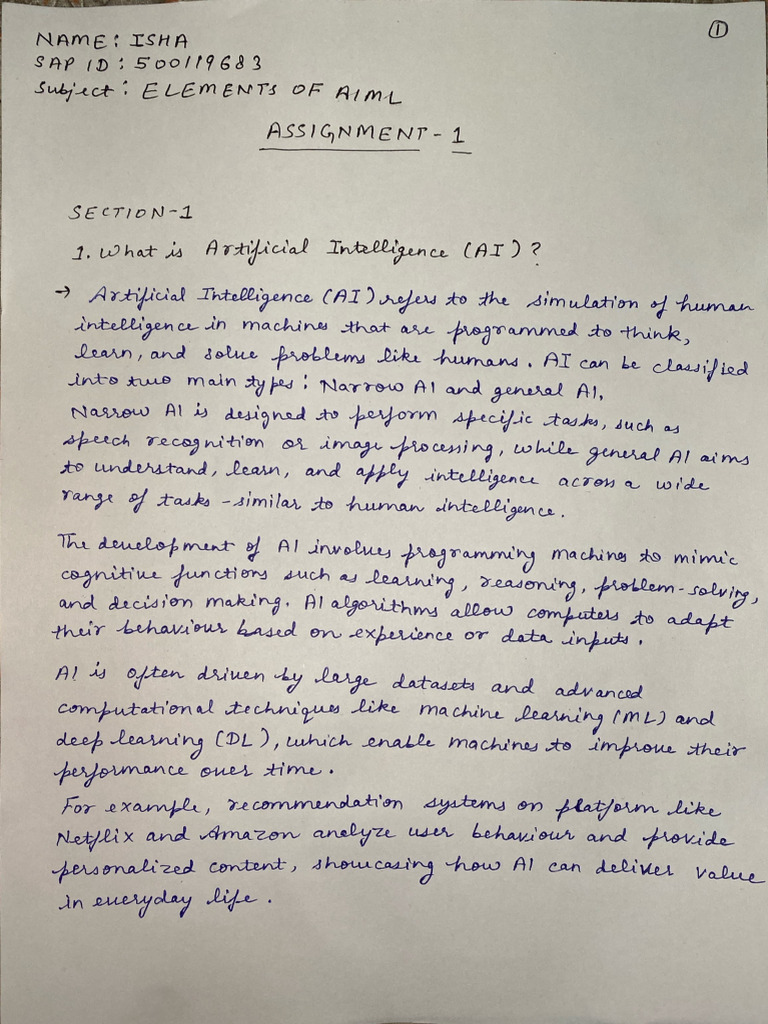 ①
NAME: ISHA
SAP ID: 500119683
Subject: ELEMENTS OF AIML
ASSIGNMENT-1
SECTION-1
1. What is Artificial Intelligence (AI)?
→ Artificial Intelligence (AI) refers to the simulation of human
intelligence in machines that are programmed to think,
learn, and solve problems like humans. AI can be classified
into two main types: Narrow AI and general AI.
Narrow AI is designed to perform specific tasks, such as
speech recognition or image processing, while general AI aims
to understand, learn, and apply intelligence across a wide
range of tasks - similar to human intelligence.
The development of AI involves programming machines to mimic
cognitive functions such as learning, reasoning, problem-solving,
and decision making. AI algorithms allow computers to adapt
their behaviour based on experience or data inputs.
AI is often driven by large datasets and advanced
computational techniques like machine learning (ML) and
deep learning (DL), which enable machines to improve their
performance over time.
For example, recommendation systems on platform like
Netflix and Amazon analyze user behaviour and provide
personalized content, showcasing how AI can deliver value
in everyday life.